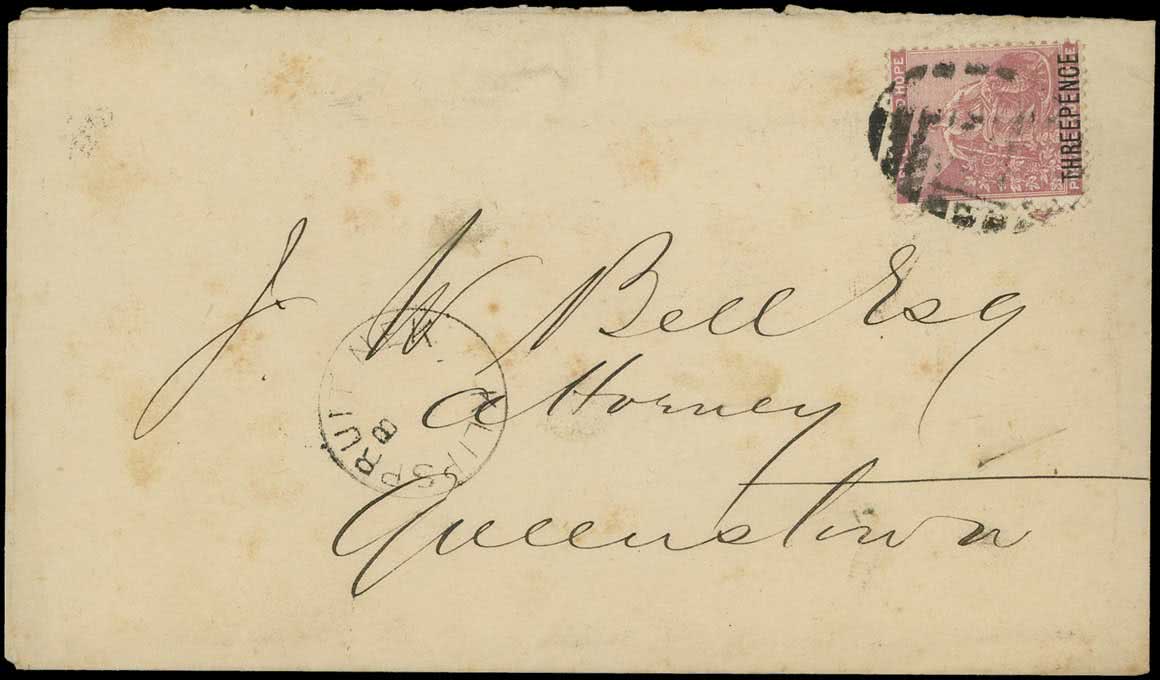 HOPE
THREEPENCE
J. W. Bell Esq
Attorney
Queenstown
KLIPSPRUIT NEK